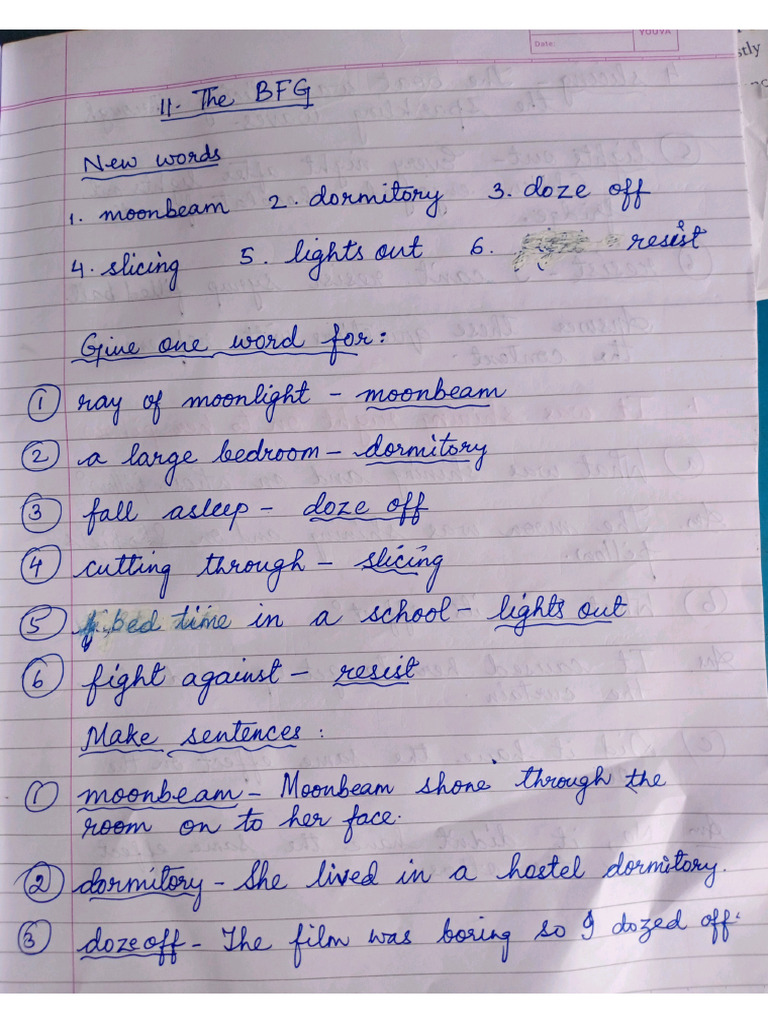 YOUVA
Date:
stly
11. The BFG
New words
1. moonbeam 2. dormitory 3. doze off
4. slicing 5. lights out 6. resist
Give one word for:
1 ray of moonlight - moonbeam
2 a large bedroom - dormitory
3 fall asleep - doze off
4 cutting through - slicing
5 bed time in a school - lights out
6 fight against - resist
Make sentences :
1 moonbeam - Moonbeam shone through the
room on to her face.
2 dormitory - She lived in a hostel dormitory.
3 doze off - The film was boring so I dozed off.